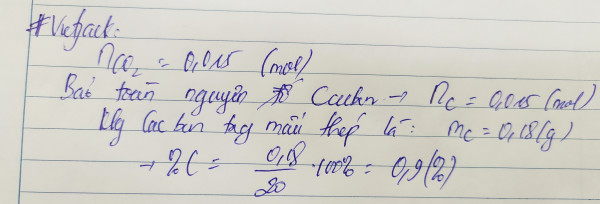 #Vietjack:
nCO2 = 0,015 (mol)
Bảo toàn nguyên tố Cacbon → nC = 0,015 (mol)
Klg Cacbon trong mẫu thép là: mC = 0,18 (g)
→ %C = 0,18/20 · 100% = 0,9 (%)